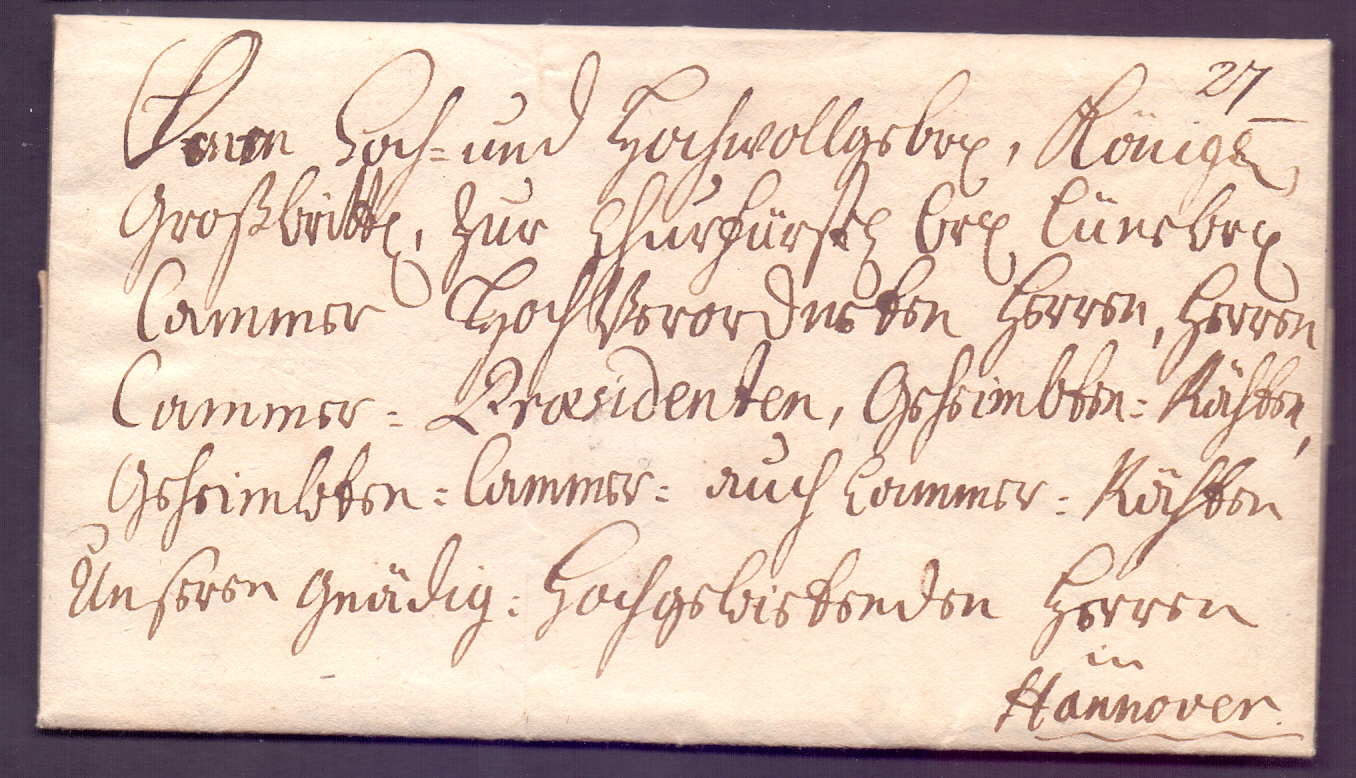 27
Denen Hoch- und Hochwollgebr, Königl
Großbritt, zur Churfürstl br Lünebr
Cammer HochVerordneten Herren, Herren
Cammer- Præsidenten, Geheimbten- Räthen,
Geheimbten- Cammer- auch Cammer- Räthen
Unseren Gnädig: Hochgebietenden Herren
in
Hannover.